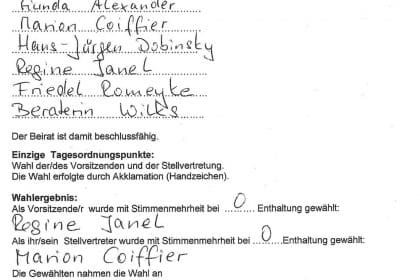 Gunda Alexander
Marion Coiffier
Hans-Jürgen Dobinsky
Regine Janel
Friedel Romeyke
Beraterin Wilks
Der Beirat ist damit beschlussfähig.
Einzige Tagesordnungspunkte:
Wahl der/des Vorsitzenden und der Stellvertretung.
Die Wahl erfolgte durch Akklamation (Handzeichen).
Wahlergebnis:
Als Vorsitzende/r wurde mit Stimmenmehrheit bei ...0... Enthaltung gewählt:
Regine Janel
Als ihr/sein Stellvertreter wurde mit Stimmenmehrheit bei ...0... Enthaltung gewählt:
Marion Coiffier
Die Gewählten nahmen die Wahl an